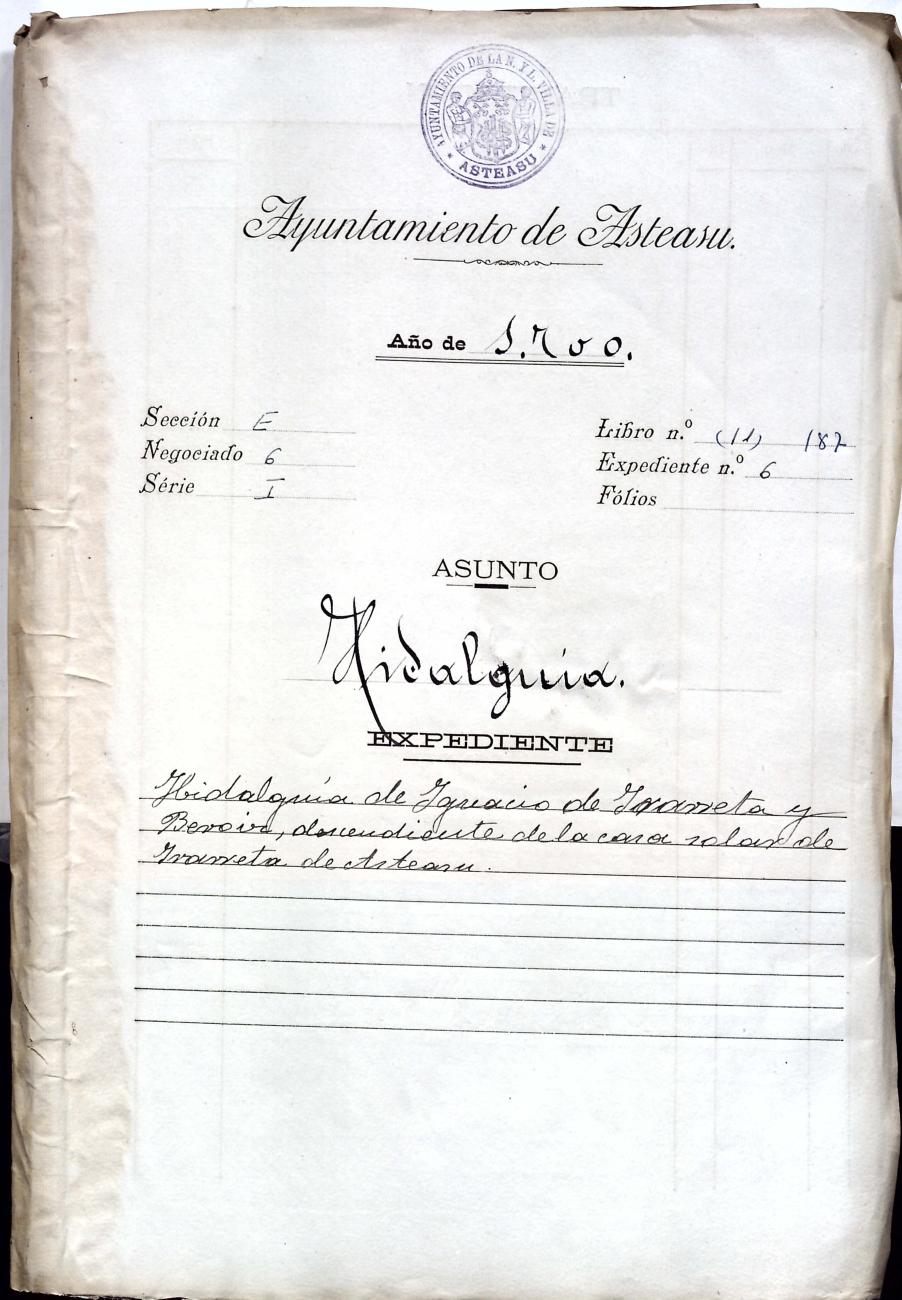 AYUNTAMIENTO DE LA N. Y L. VILLA DE
ASTEASU
Ayuntamiento de Asteasu.
Año de 1.700.
Sección E
Negociado 6
Série I
Libro n.º (11) 187
Expediente n.º 6
Fólios
ASUNTO
Hidalguía.
EXPEDIENTE
Hidalguía de Ignacio de Yrarreta y
descendiente de la casa solar de
Yrarreta de Asteasu.